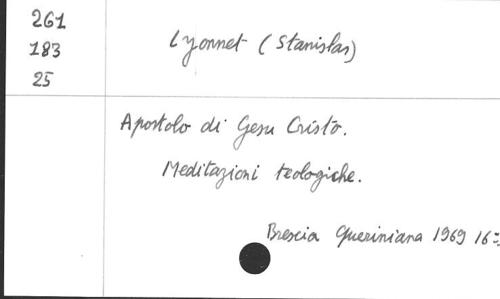 261
183
25
Lyonnet (Stanislas)
Apostolo di Gesu Cristo.
Meditazioni teologiche.
Brescia Queriniana 1969 16°